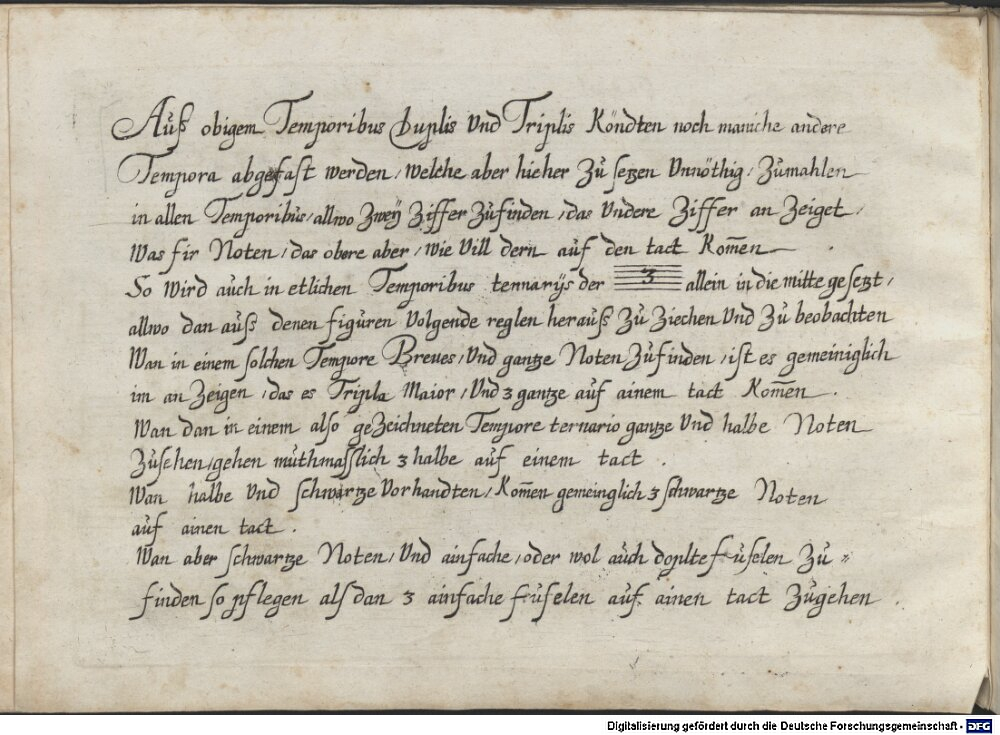 Auß obigem Temporibus Duplis Vnd Triplis Köndten noch maniche andere
Tempora abgefast werden / welche aber hieher Zu setzen Vnnöthig / Zumahlen
in allen Temporibus / allwo Zweÿ Ziffer Zufinden / das Vndere Ziffer an Zeiget /
Was fir Noten / das obere aber / wie Vill dern auf den tact Kom̄en
So wird auch in etlichen Temporibus tennarÿs der 3 allein in die mitte gesetzt /
allwo dan auss denen figuren Volgende reglen herauß Zu Ziechen Vnd Zu beobachten
Wan in einem solchen Tempore Breues / Vnd gantze Noten Zufinden / ist es gemeiniglich
im an Zeigen / das es Tripla Maior / Vnd 3 gantze auf ainem tact Kom̄en .
Wan dan in einem also geZeichneten Tempore ternario gantze Vnd halbe Noten
Zusehen / gehen muthmasslich 3 halbe auf einem tact .
Wan halbe Vnd schwartze Vorhandten / Kom̄en gemeinglich 3 schwartze Noten
auf ainen tact .
Wan aber schwartze Noten / Vnd ainfache / oder wol auch doplte fuselen Zu =
finden so pflegen alsdan 3 ainfache fuselen auf ainen tact Zugehen .
Digitalisierung gefördert durch die Deutsche Forschungsgemeinschaft - DFG